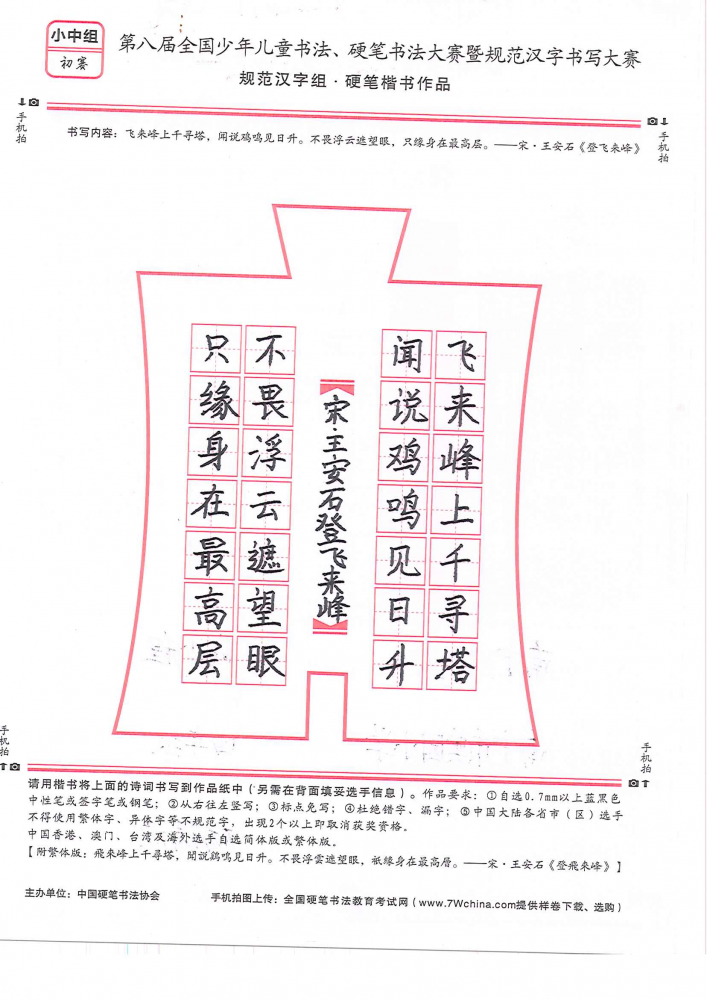 小中组
初赛
第八届全国少年儿童书法、硬笔书法大赛暨规范汉字书写大赛
规范汉字组·硬笔楷书作品
手机拍
手机拍
书写内容：飞来峰上千寻塔，闻说鸡鸣见日升。不畏浮云遮望眼，只缘身在最高层。——宋·王安石《登飞来峰》
飞来峰上千寻塔
闻说鸡鸣见日升
宋·王安石登飞来峰
不畏浮云遮望眼
只缘身在最高层
手机拍
手机拍
请用楷书将上面的诗词书写到作品纸中（另需在背面填妥选手信息）。作品要求：①自选0.7mm以上蓝黑色
中性笔或签字笔或钢笔；②从右往左竖写；③标点免写；④杜绝错字、漏字；⑤中国大陆各省市（区）选手
不得使用繁体字、异体字等不规范字，出现2个以上即取消获奖资格。
中国香港、澳门、台湾及海外选手自选简体版或繁体版。
【附繁体版：飛來峰上千尋塔，聞說鷄鳴見日升。不畏浮雲遮望眼，祇緣身在最高層。——宋·王安石《登飛來峰》】
主办单位：中国硬笔书法协会
手机拍图上传：全国硬笔书法教育考试网（www.7Wchina.com提供样卷下载、选购）